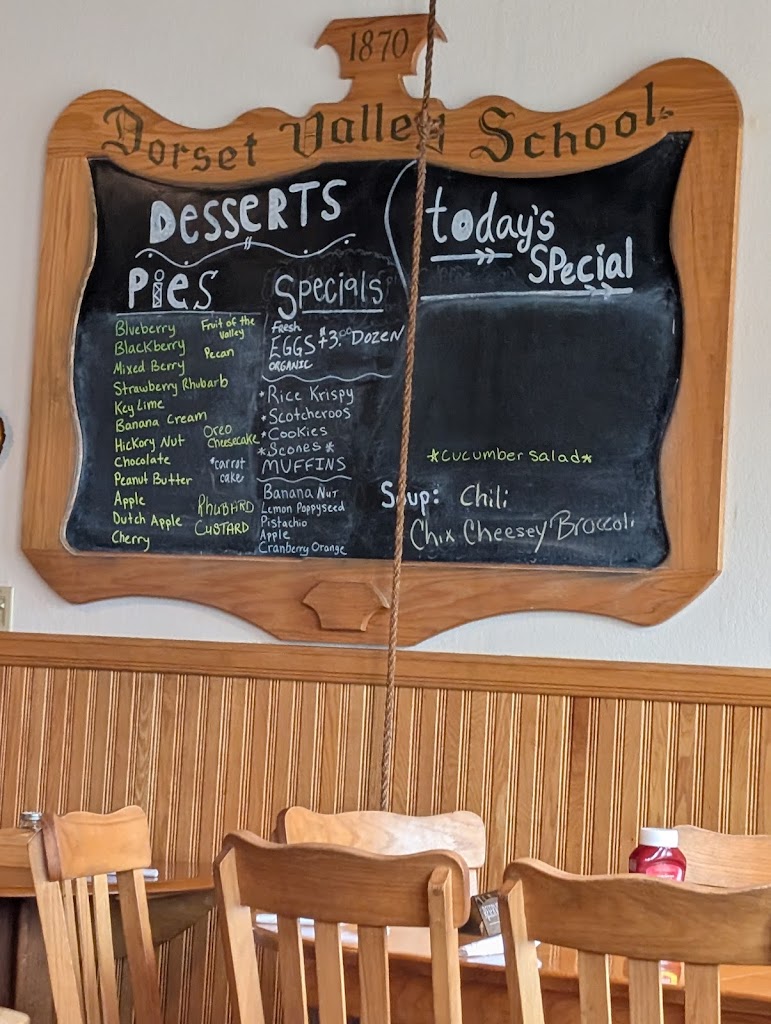 1870
Dorset Valley School
DESSERTS
Pies
Blueberry
Blackberry
Mixed Berry
Strawberry Rhubarb
Key Lime
Banana Cream
Hickory Nut
Chocolate
Peanut Butter
Apple
Dutch Apple
Cherry
Fruit of the
Valley
Pecan
Oreo
Cheesecake
*carrot
cake
RhUBARD
CUSTARD
Specials
Fresh
EGGS $3.00 DOZEN
ORGANIC
*Rice Krispy
*Scotcheroos
*Cookies
*Scones*
MUFFINS
Banana Nut
Lemon Poppyseed
Pistachio
Apple
Cranberry Orange
today's
SPecial
*cucumber salad*
Soup: Chili
Chix Cheesey Broccoli